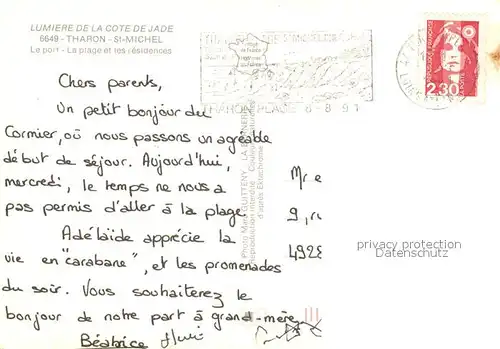 LUMIERE DE LA COTE DE JADE
6649 - THARON - St-MICHEL
Le port - La plage et les résidences
THARON PLAGE 6-8 91
REPUBLIQUE FRANÇAISE
2,30
Chers parents,
Un petit bonjour du
Cormier, où nous passons un agréable
début de séjour. Aujourd'hui,
mercredi, le temps ne nous a
pas permis d'aller à la plage.
Adélaïde apprécie la
vie en "carabane", et les promenades
du soir. Vous souhaiterez le
bonjour de notre part à grand-mère
Béatrice
Photo Marc GUITTENY
Reproduction interdite
d'après Ektachrome
Mr e
9, ru
4928
privacy protection
Datenschutz